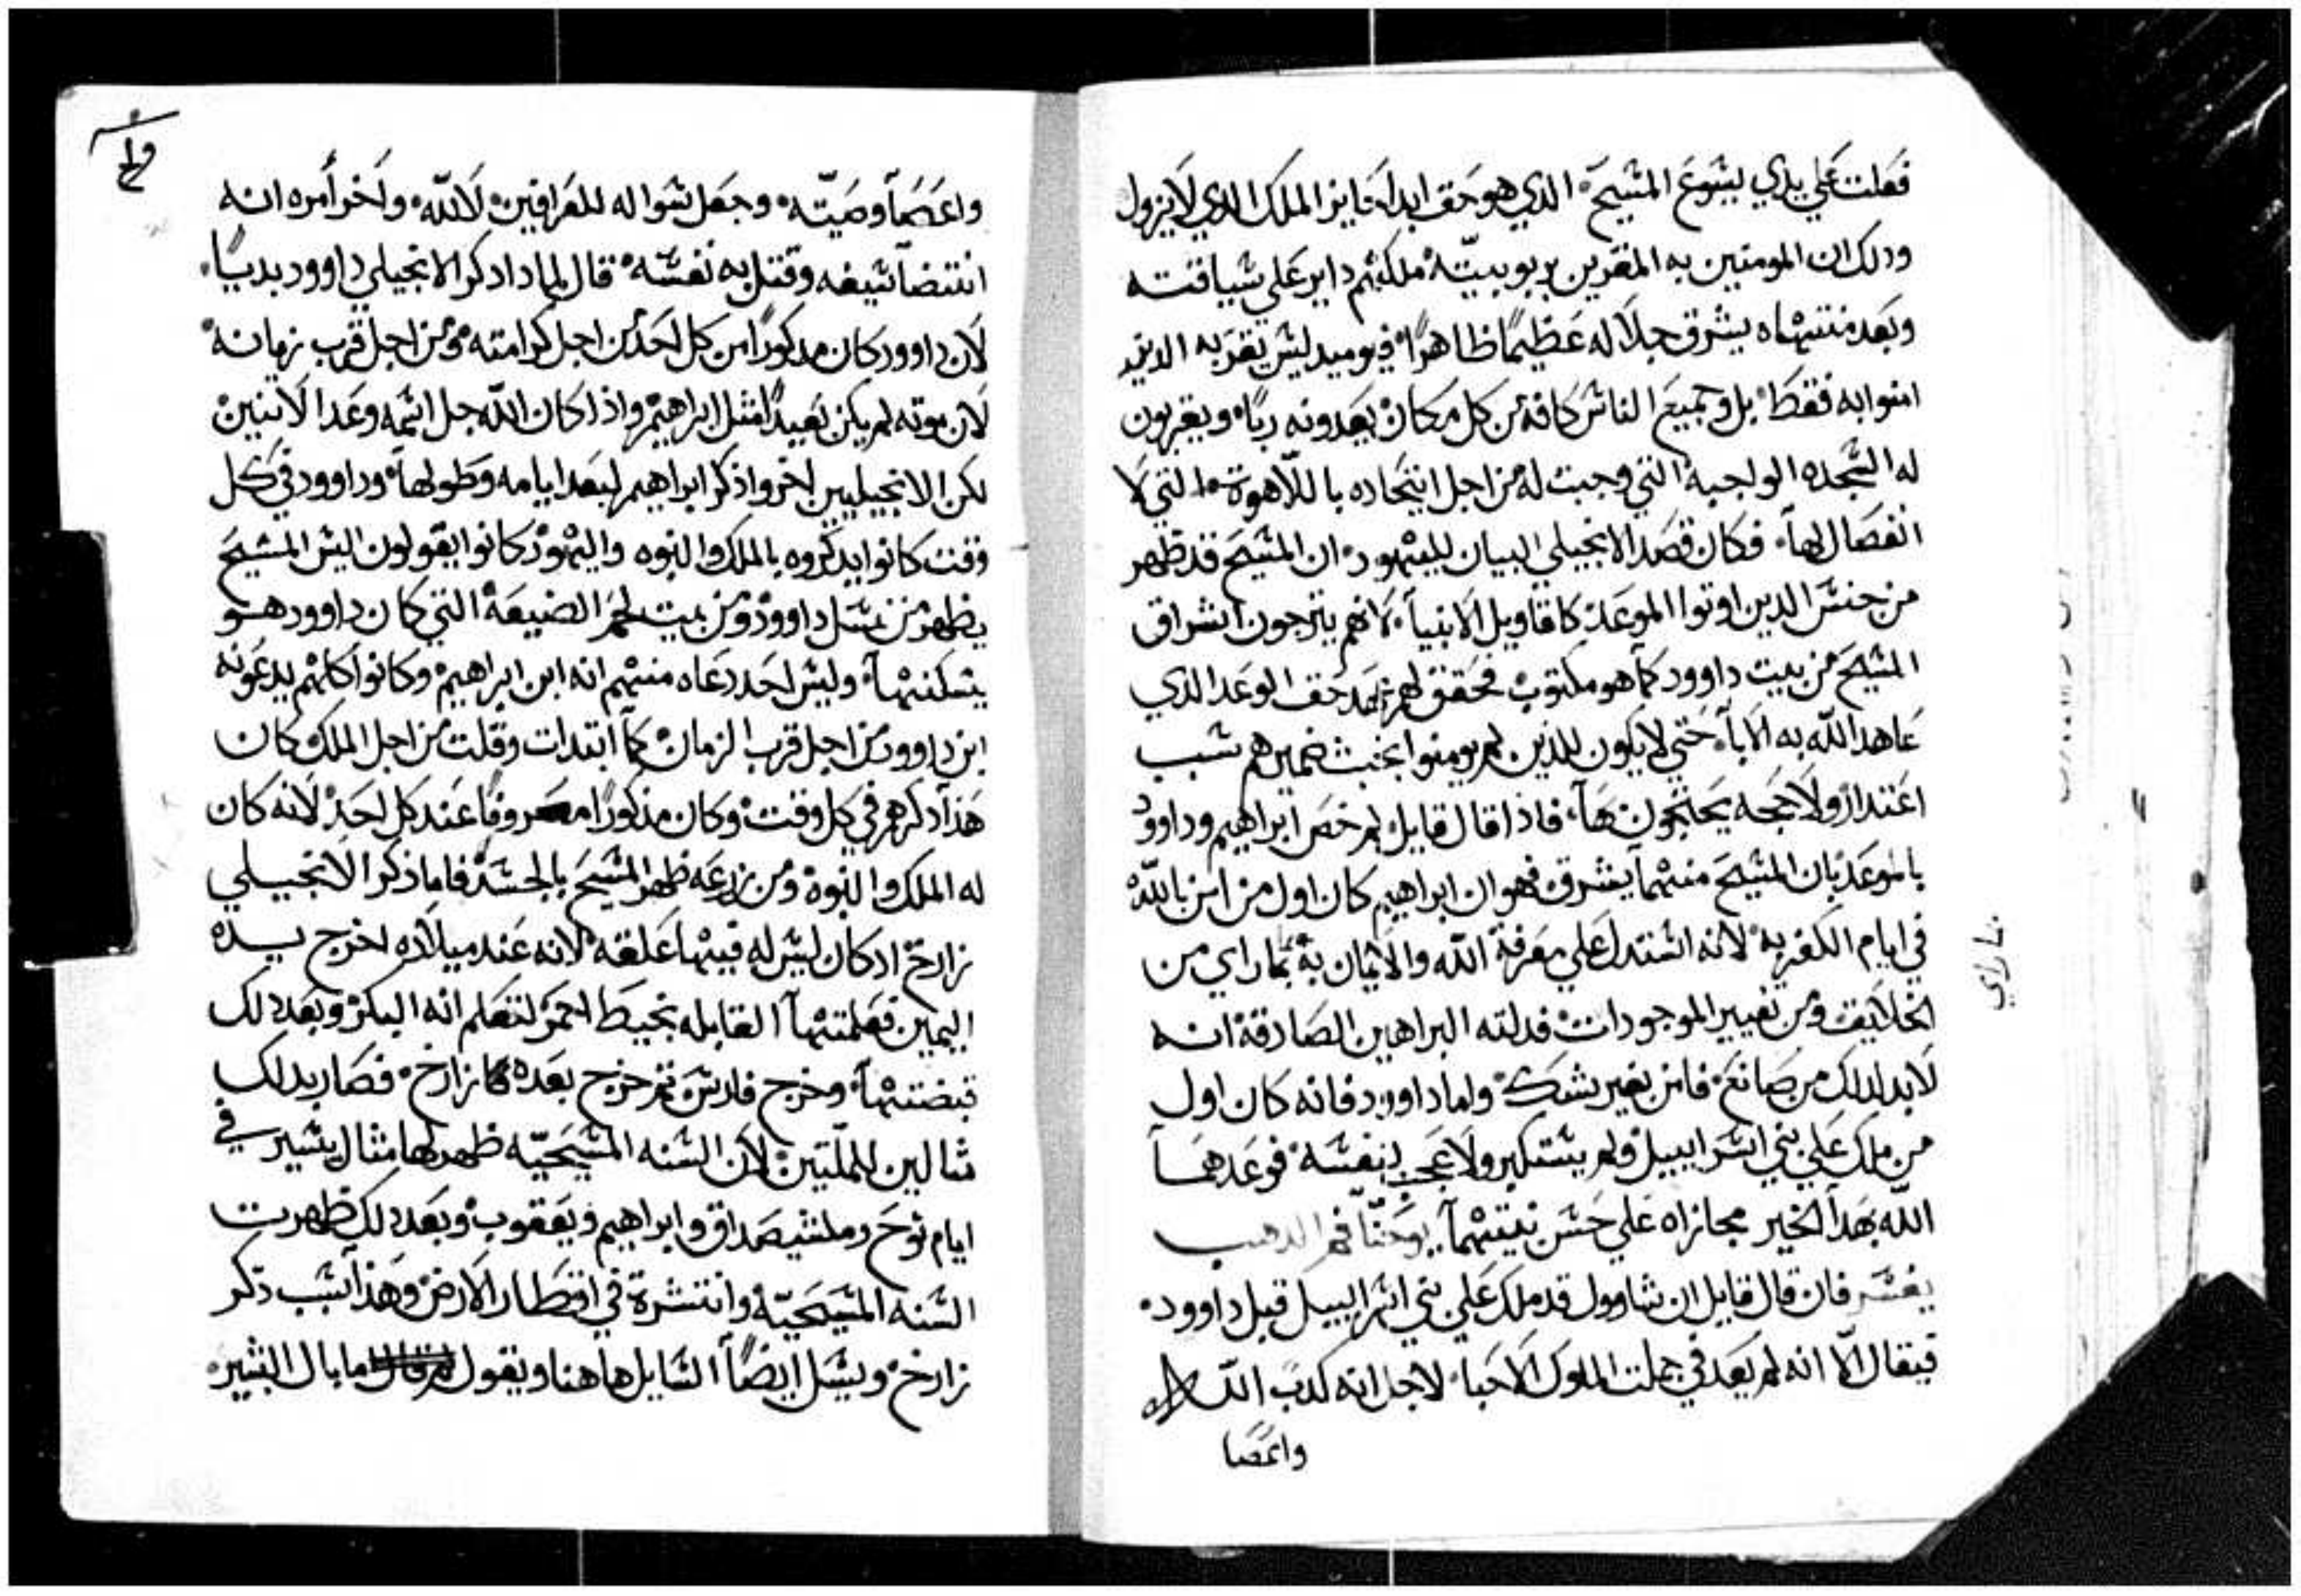 فعلت علي يدي يشوع المشيح الدي هو حقا ابدا خاير الملك الدي لا يزول
ودلك ان المومنين به المقرين بربوبيته ملكهم داير علي شياقته
وبعد منتهاه يشرق جلاله عظيمًا ظاهرًا في يوميد ليش يقر به الدين
امنوا به فقط بل وجميع الناش كافة من كل مكان يعدونه ربًا ويقربون
له الشجده الواجبة التي وجبت له من اجل اتحاده باللاهوة التي لا
انفصال لها فكان قصد الانجيلي البيان لليهود ان المشيح قد ظهر
من جنش الدين اوتوا الموعد كاقاويل الانبيا لانهم يترجون اشراق
المشيح من بيت داوود كما هو مكتوب فحقق لهم حق الوعد الدي
عاهد الله به الابا حتي لا يكون للذين لم يومنوا بخبث ضميرهم شبب
اعتدار ولا حجه يحتجون بها فاذا قال قايل لم خص ابراهيم وداوود
بالموعد بان المشيح منهما يشرق فهو ان ابراهيم كان اول من امن بالله
في ايام الكفر به لانه اشتدل علي معرفة الله والايمان به بما راي من
الخلايق ومن تغيير الموجودات فدلته البراهين الصادقة انه
لابد لدلك من صانع فامن بغير شك واما داوود فانه كان اول
من ملك علي بني اشراييل ولم يشتكبر ولا عجب بنفشه فوعدهما
الله بهدا الخير مجازاه علي حشن نيتهما يوحنا فم الدهب
يفشر فان قال قايل ان شاوول قد ملك علي بني اشراييل قبل داوود
فيقال الا انه لم يعد في جملت الملوك الاحبا لاجل انه كدب الله
واعصا
شارازي
واعصا وصيته وجعل شواله للعرافين لا لله واخر أمره انه
انتضا شيفه وقتل به نفشه قال لمادا دكر الانجيلي داوود بديًا
لان داوود كان مدكورًا من كل احد من اجل كرامته ومن اجل قرب زمانه
لان موته لم يكن بعيدًا مثل ابراهيم واذا كان الله جل اشمه وعد الاتنين
لكن الانجيليين اخروا ذكر ابراهيم لبعد ايامه وطولها وداوود في كل
وقت كانوا يدكروه بالملك والنبوه واليهود كانوا يقولون اليش المشيح
يظهر من نشل داوود ومن بيت لحم الضيعة التي كان داوود هو
يشكنها وليش احد دعاه منهم انه ابن ابراهيم وكانوا كلهم يدعونه
ابن داوود من اجل قرب الزمان كما ابتدات وقلت من اجل الملك كان
هذا دكرهم في كل وقت وكان مذكورًا معروفًا عند كل احد لانه كان
له الملك والنبوة ومن زرعه ظهر المشيح بالجشد فاما ذكر الانجيلي
زارخ اد كان ليش له فيها علقة لانه عند ميلاده اخرج يده
اليمين فعلمتها القابله بخيط احمر لتعلم انه البكر وبعد دلك
قبضها وخرج فارش تم خرج بعده زارخ فصار بدلك
مثالين للملتين لان الشنه المشيحيه ظهر لها مثال يشير في
ايام نوح وملشيصداق وابراهيم ويعقوب وبعد دلك ظهرت
الشنه المشيحيه وانتشرة في اقطار الارض وهذا شبب ذكر
زارخ ويشل ايضًا الشايل هاهنا ويقول ما بال البشير